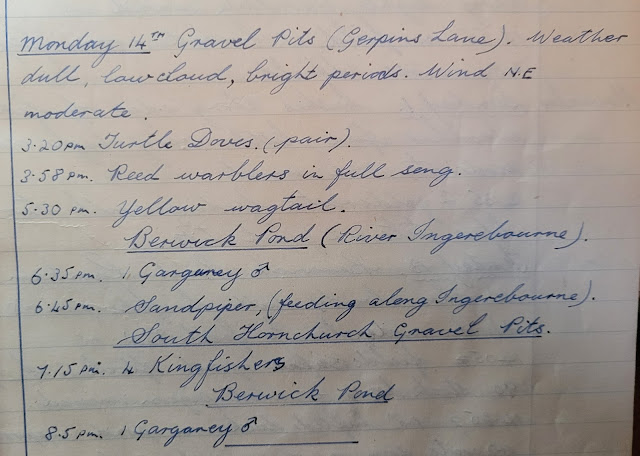 Monday 14TH Gravel Pits (Gerpins Lane). Weather
dull, low cloud, bright periods. Wind N.E
moderate.
3.20pm Turtle Doves. (pair).
3.58pm. Reed warblers in full song.
5.30 pm. Yellow wagtail.
Berwick Pond (River Ingerebourne).
6.35pm. 1 Garganey ♂
6.45pm. Sandpiper, (feeding along Ingerebourne).
South Hornchurch Gravel Pits.
7.15pm. 4 Kingfishers
Berwick Pond
8.5pm. 1 Garganey ♂